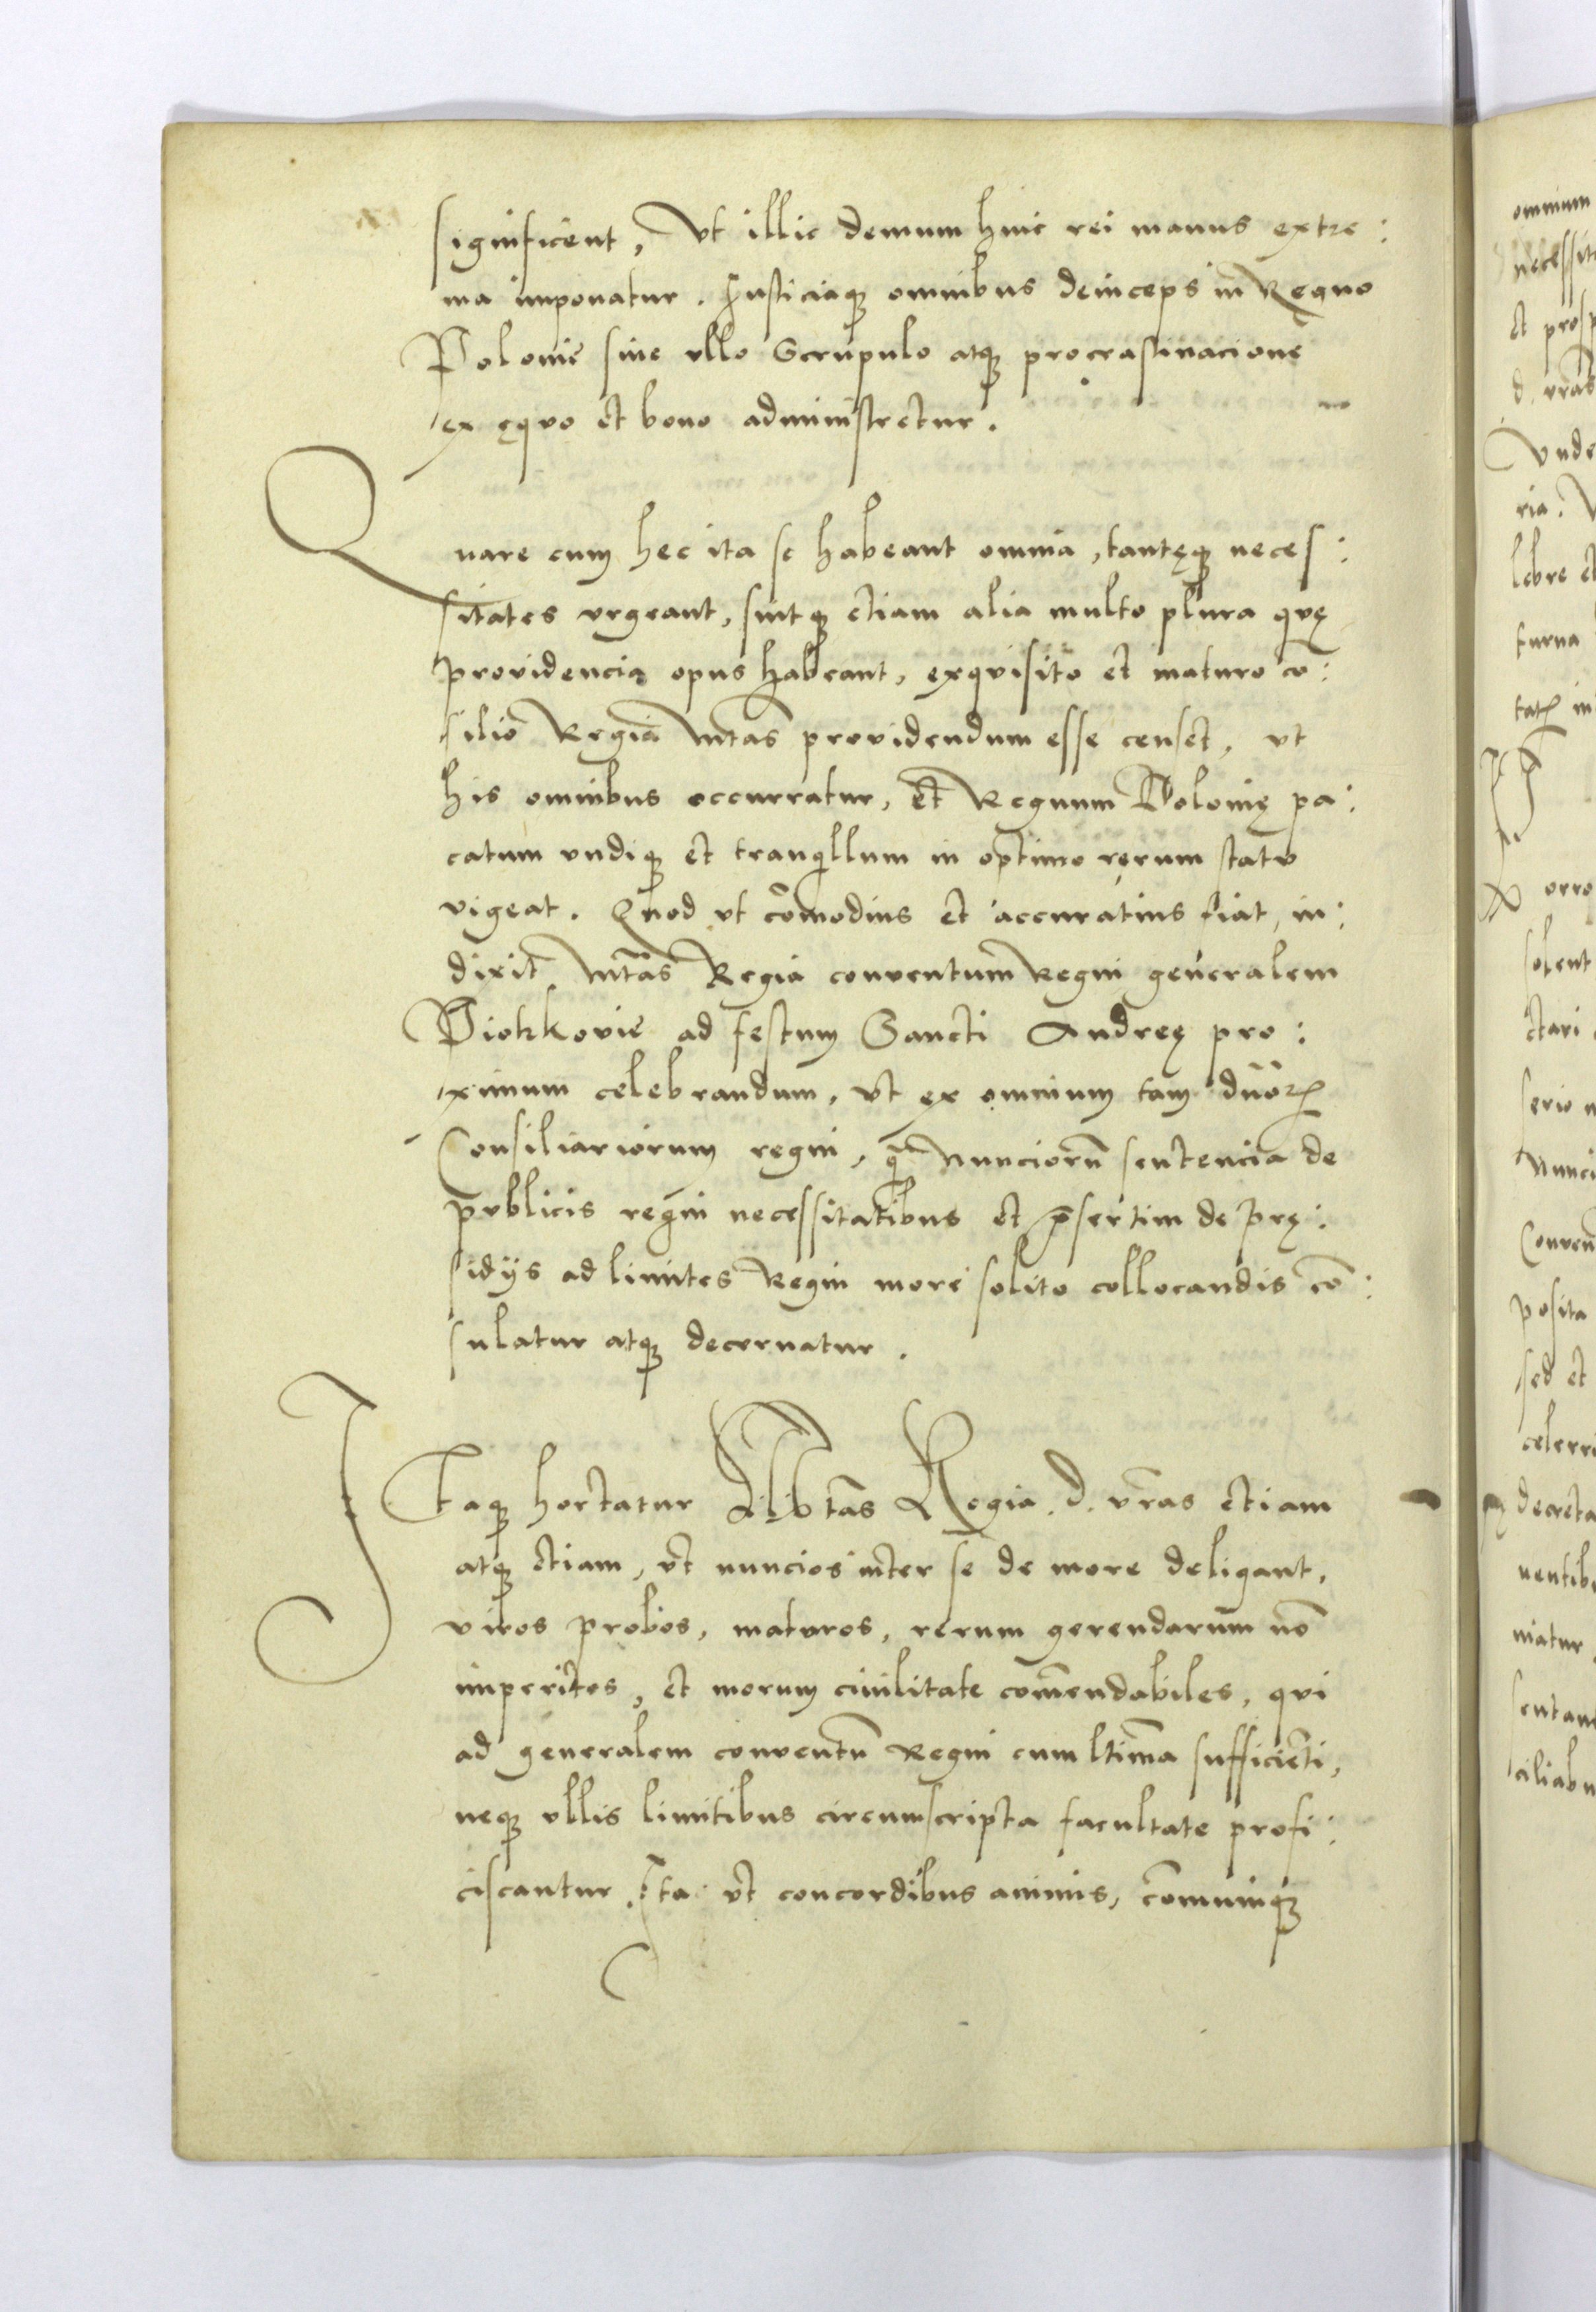 significent, Vt illic demum huic rei manus extre:
ma imponatur. Justiciaqꝫ omnibus deinceps in Regno
Polonie sine ullo Scrupulo atqꝫ procrastinacione
ex ęquo et bono administretur.
Quare cum hec ita se habeant omnia, tantęqꝫ neces:
sitates urgeant, sintqꝫ etiam alia multo plura quę
providencia opus habeant, exquisito et maturo cō:
silio Regia Mtas providendum esse censet, ut
his omnibus occurratur, et Regnum Polonię pa:
catum undiqꝫ et tranqillum in optimo rerum statu
vigeat. Quod ut cōmodius et accuratius fiat, in:
dixit Mtas Regia conventum Regni generalem
Piotrkovie ad festum Sancti Andreę pro:
ximum celebrandum, Ut ex omnium tam dnōrꝫ
Consiliariorum regni, qͣ Nunciorū sentencia de
publicis regni necessitatibus et p̄sertim de prę:
sidijs ad limites Regni more solito collocandis cō:
sulatur atqꝫ decernatur.
Itaqꝫ hortatur Mtas Regia. d. vrās etiam
atqꝫ etiam, ut nuncios inter se de more deligant,
viros probos, maturos, rerum gerendarum nō
imperitos, et morum civilitate comēndabiles, qui
ad generalem conventū Regni cum ltīma sufficiēti,
neqꝫ ullis limitibus circumscripta facultate profi:
ciscantur. Ita ut concordibus animis, cōmuniqꝫ
omnium
necessit
et prosp
d. vrās
Unde
ria. V
lebre et
turna
tatꝫ in
orro
solent
ctari
serio
Nunci
Conven
posita
sed et
celerri
decreta
ventib
niatur
sentan
ciliabu